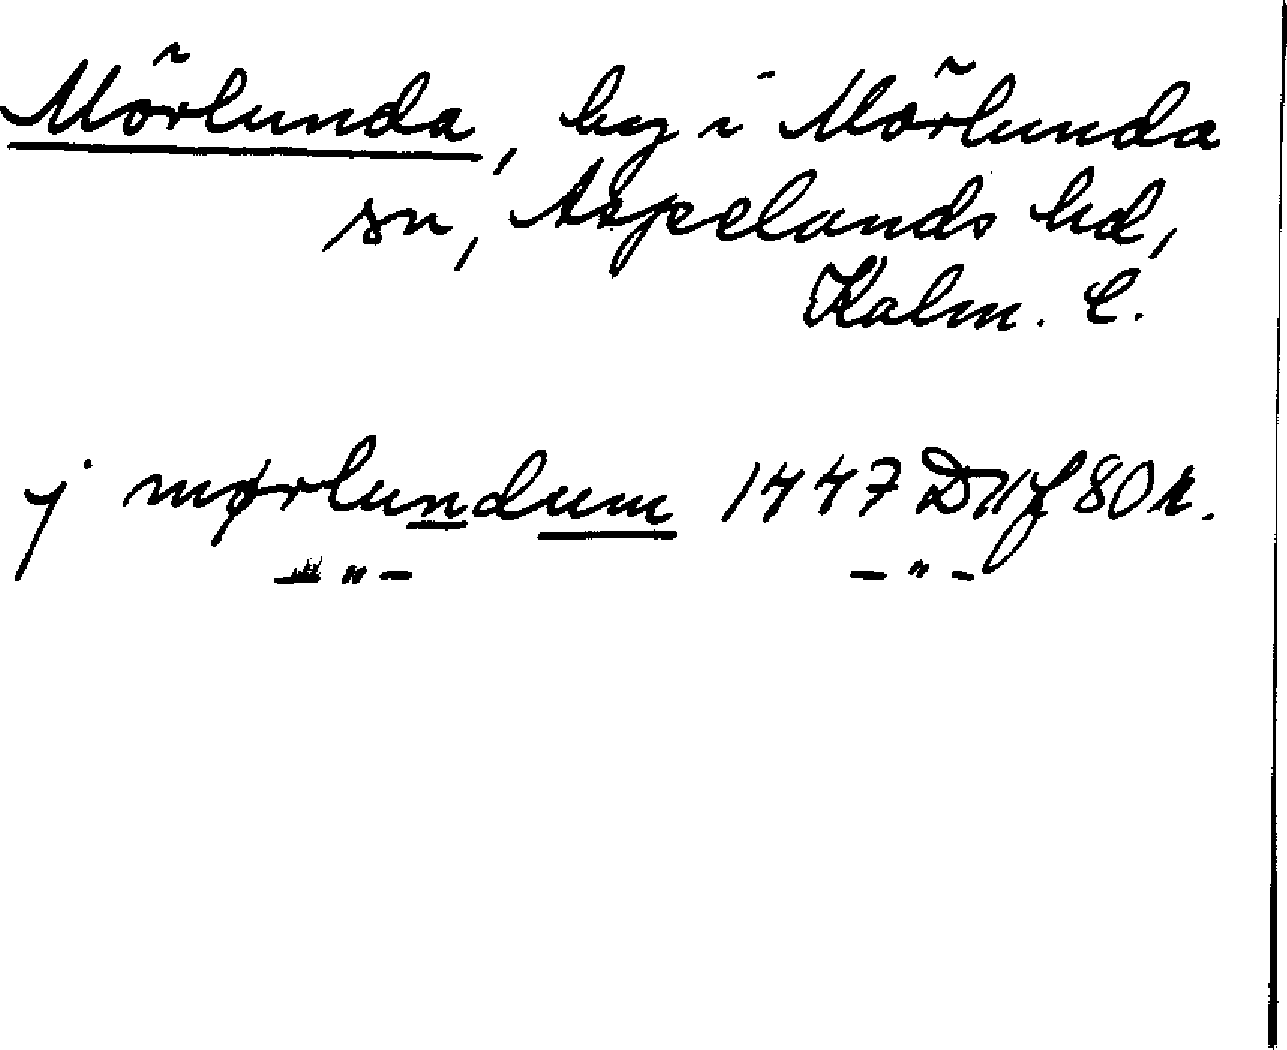 Mörlunda, by i Mörlunda
sn, Aspelands hd,
Kalm. l.
j mørlundum 1447 D11 f 80 r.
— " — — " —